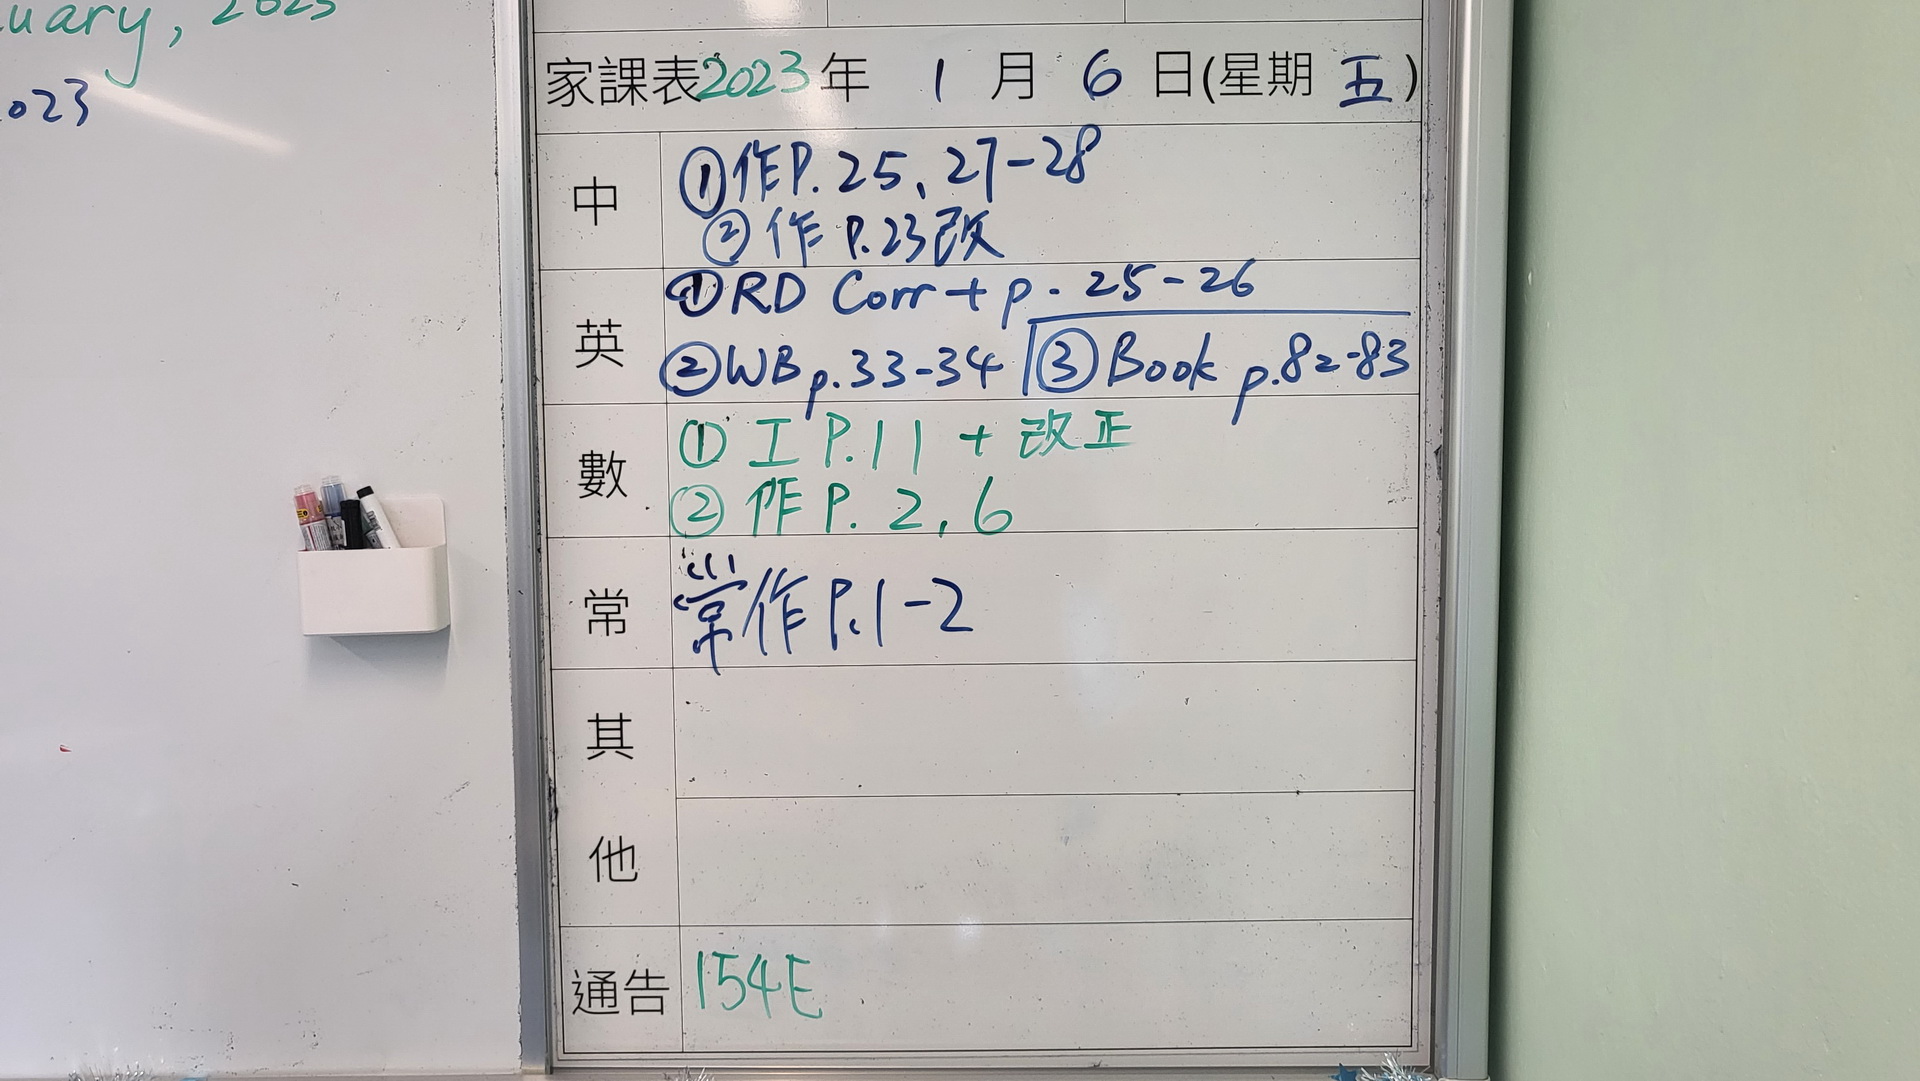 uary, 2023
023
家課表2023年 1 月 6 日(星期 五)
中
①作P.25、27-28
②作 P.23改
英
①RD Corr + p. 25-26
②WB p.33-34 ③Book p.82-83
數
① 工 P.11 + 改正
② 作 P. 2, 6
常
常作 P.1-2
其
他
通告 154E